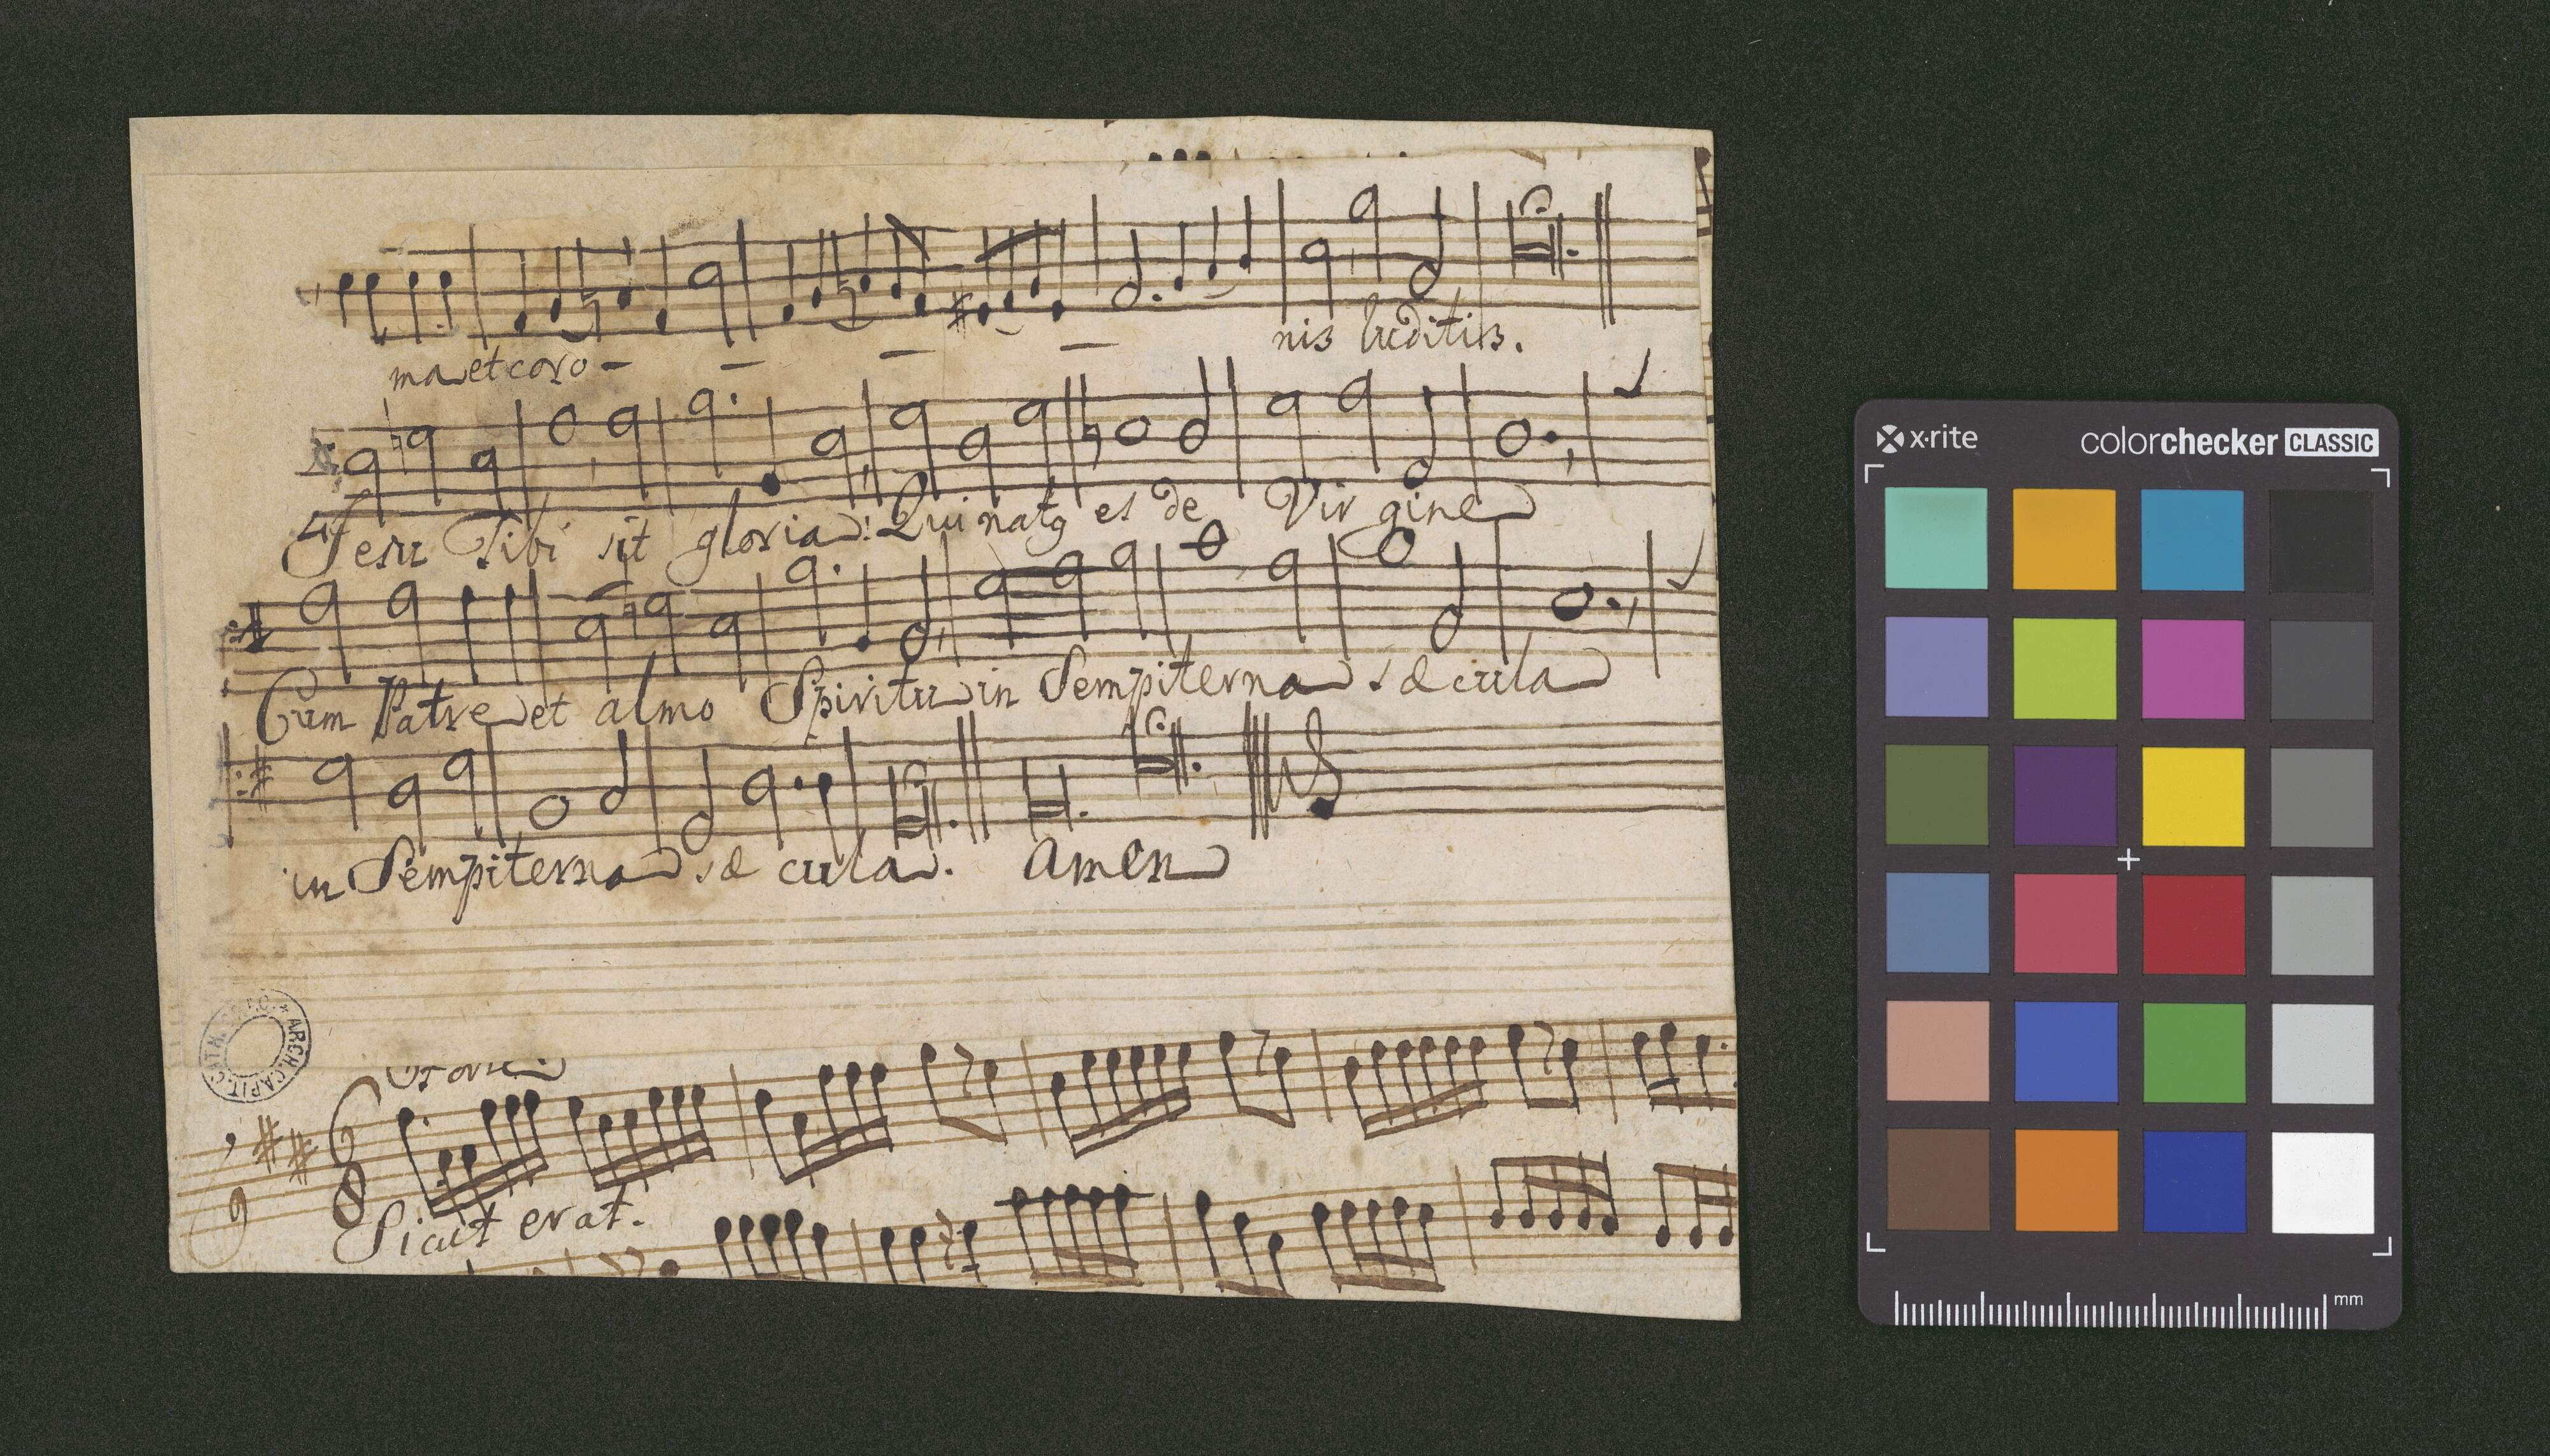 ma et coro - - - - nis luditis.
4 Jesu Tibi sit gloria: Qui natꝯ es de Virgine
Cum Patre et almo Spiritu in Sempiterna sæcula
in Sempiterna sæcula. Amen
ARCH. CAPIT.
6
8
Sicut erat.
x-rite
colorchecker CLASSIC
mm